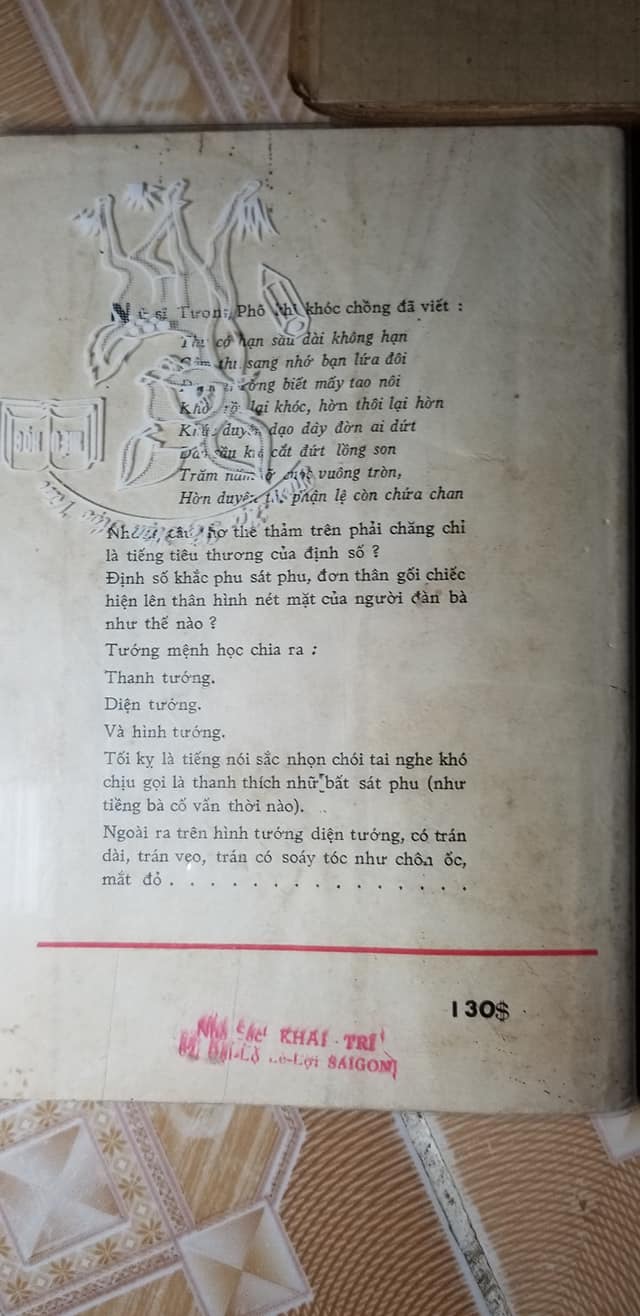 Nữ sĩ Tương Phố khi khóc chồng đã viết :
có hạn sầu dài không hạn
thu sang nhớ bạn lứa đôi
biết mấy tao nôi
Khờ rồ lại khóc, hờn thôi lại hờn
duyên dạo dây đờn ai dứt
sầu kia cắt đứt lồng son
Trăm năm vuông tròn,
Hờn duyên phận lệ còn chứa chan
Những câu thơ thê thảm trên phải chăng chỉ
là tiếng tiêu thương của định số ?
Định số khắc phu sát phu, đơn thân gối chiếc
hiện lên thân hình nét mặt của người đàn bà
như thế nào ?
Tướng mệnh học chia ra :
Thanh tướng.
Diện tướng.
Và hình tướng.
Tối kỵ là tiếng nói sắc nhọn chói tai nghe khó
chịu gọi là thanh thích nhữ bất sát phu (như
tiềng bà cố vấn thời nào).
Ngoài ra trên hình tướng diện tướng, có trán
dài, trán vẹo, trán có soáy tóc như chôn ốc,
mắt đỏ . . . . . . . . . . . . . . .
130$
Nhà Sách KHAI-TRÍ
Đại-Lộ Lê-Lợi SAIGON